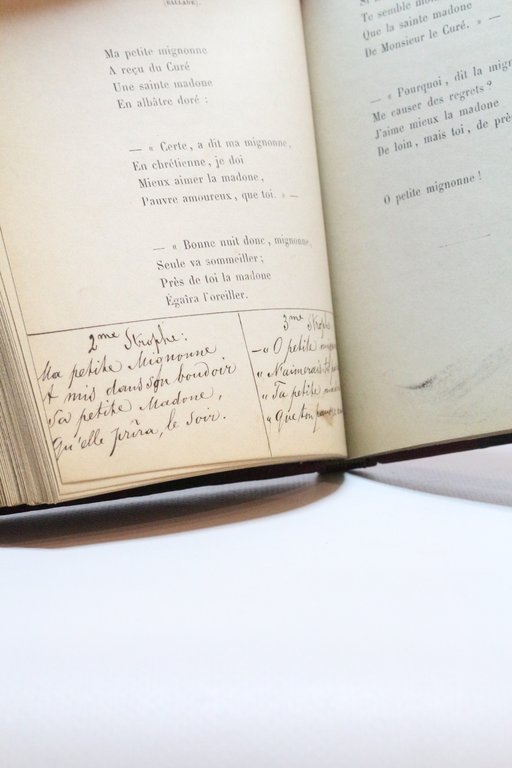 (BALLADE).
Ma petite mignonne
A reçu du Curé
Une sainte madone
En albâtre doré :
— « Certe, a dit ma mignonne,
En chrétienne, je doi
Mieux aimer la madone,
Pauvre amoureux, que toi. » —
— « Bonne nuit donc, mignonne,
Seule va sommeiller ;
Près de toi la madone
Égaîra l'oreiller.
2me Strophe :
Ma petite Mignonne
A mis dans son boudoir
Sa petite Madone,
Qu'elle prîra, le soir.
3me Strophe
— « O petite
« N'aimerais-tu
« Ta petite
« Que ton
Te semble
Que la sainte madone
De Monsieur le Curé. » —
— « Pourquoi, dit la
Me causer des regrets ?
J'aime mieux la madone
De loin, mais toi, de
O petite mignonne !